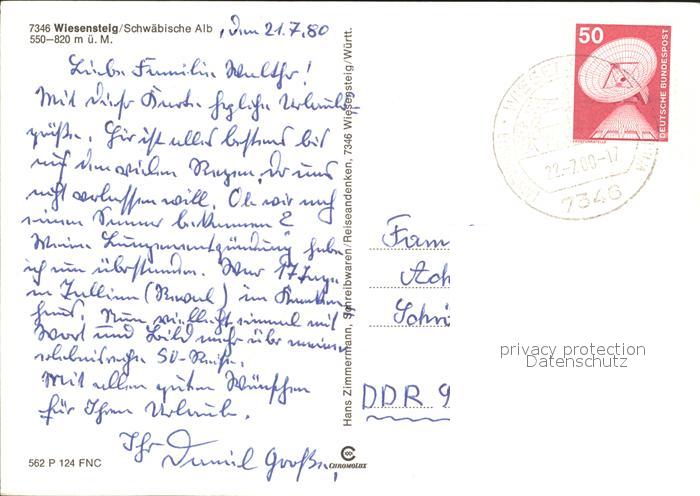 7346 Wiesensteig/Schwäbische Alb
550–820 m ü. M.
, den 21.7.80
Liebe Familie Walthr!
Mit dieser Karte herzliche Urlaubs-
grüße. Hier ist alles bestens bis
auf den vielen Regen, der uns
nicht verlassen will. Ob wir noch
einen Sommer bekommen?
Meine Lungenentzündung habe
ich nun überstanden. War 17 Tage
in Tallinn (Reval) im Kranken-
haus. Nun vielleicht einmal mit
Wort und Bild mehr über meine
erlebnisreiche SU-Reise.
Mit allen guten Wünschen
für Ihren Urlaub.
Ihr Daniel
562 P 124 FNC
CHROMOLUX
Hans Zimmermann, Schreibwaren/Reiseandenken, 7346 Wiesensteig/Württ.
50
DEUTSCHE BUNDESPOST
22.-7.80-17
7346
Fam
Ach
Schri
DDR 9
privacy protection
Datenschutz